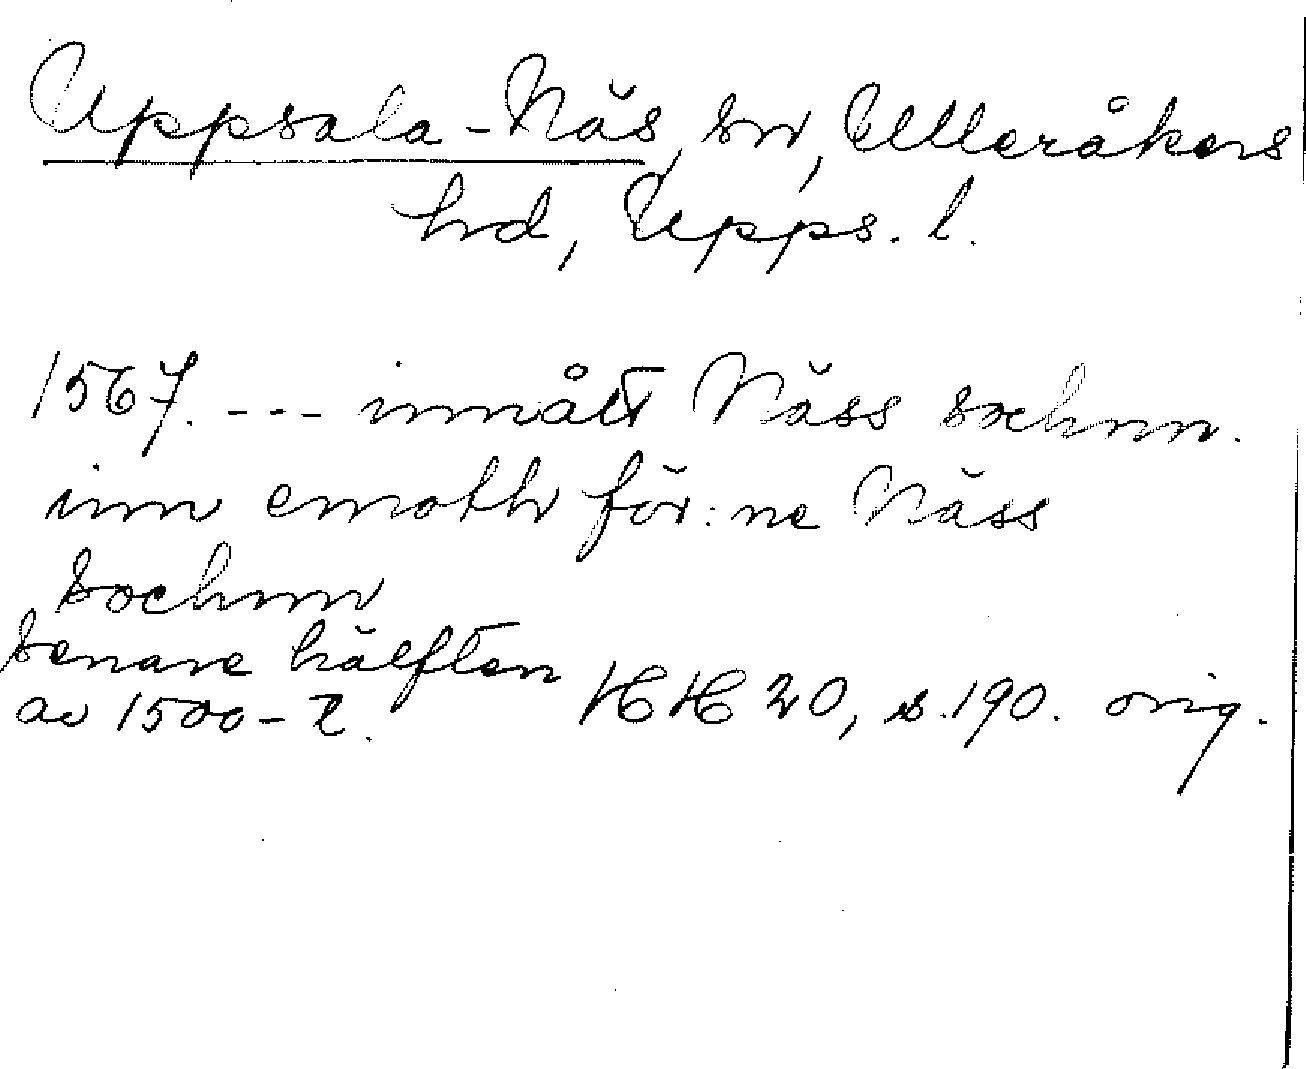 Uppsala-Näs, sn, Ulleråkers
hd, Upps. l.
1567. --- innått Näss sochnn.
inn emoth för:ne Näss
sochnn
senare hälften
av 1500-t. HH 20, s. 190. orig.